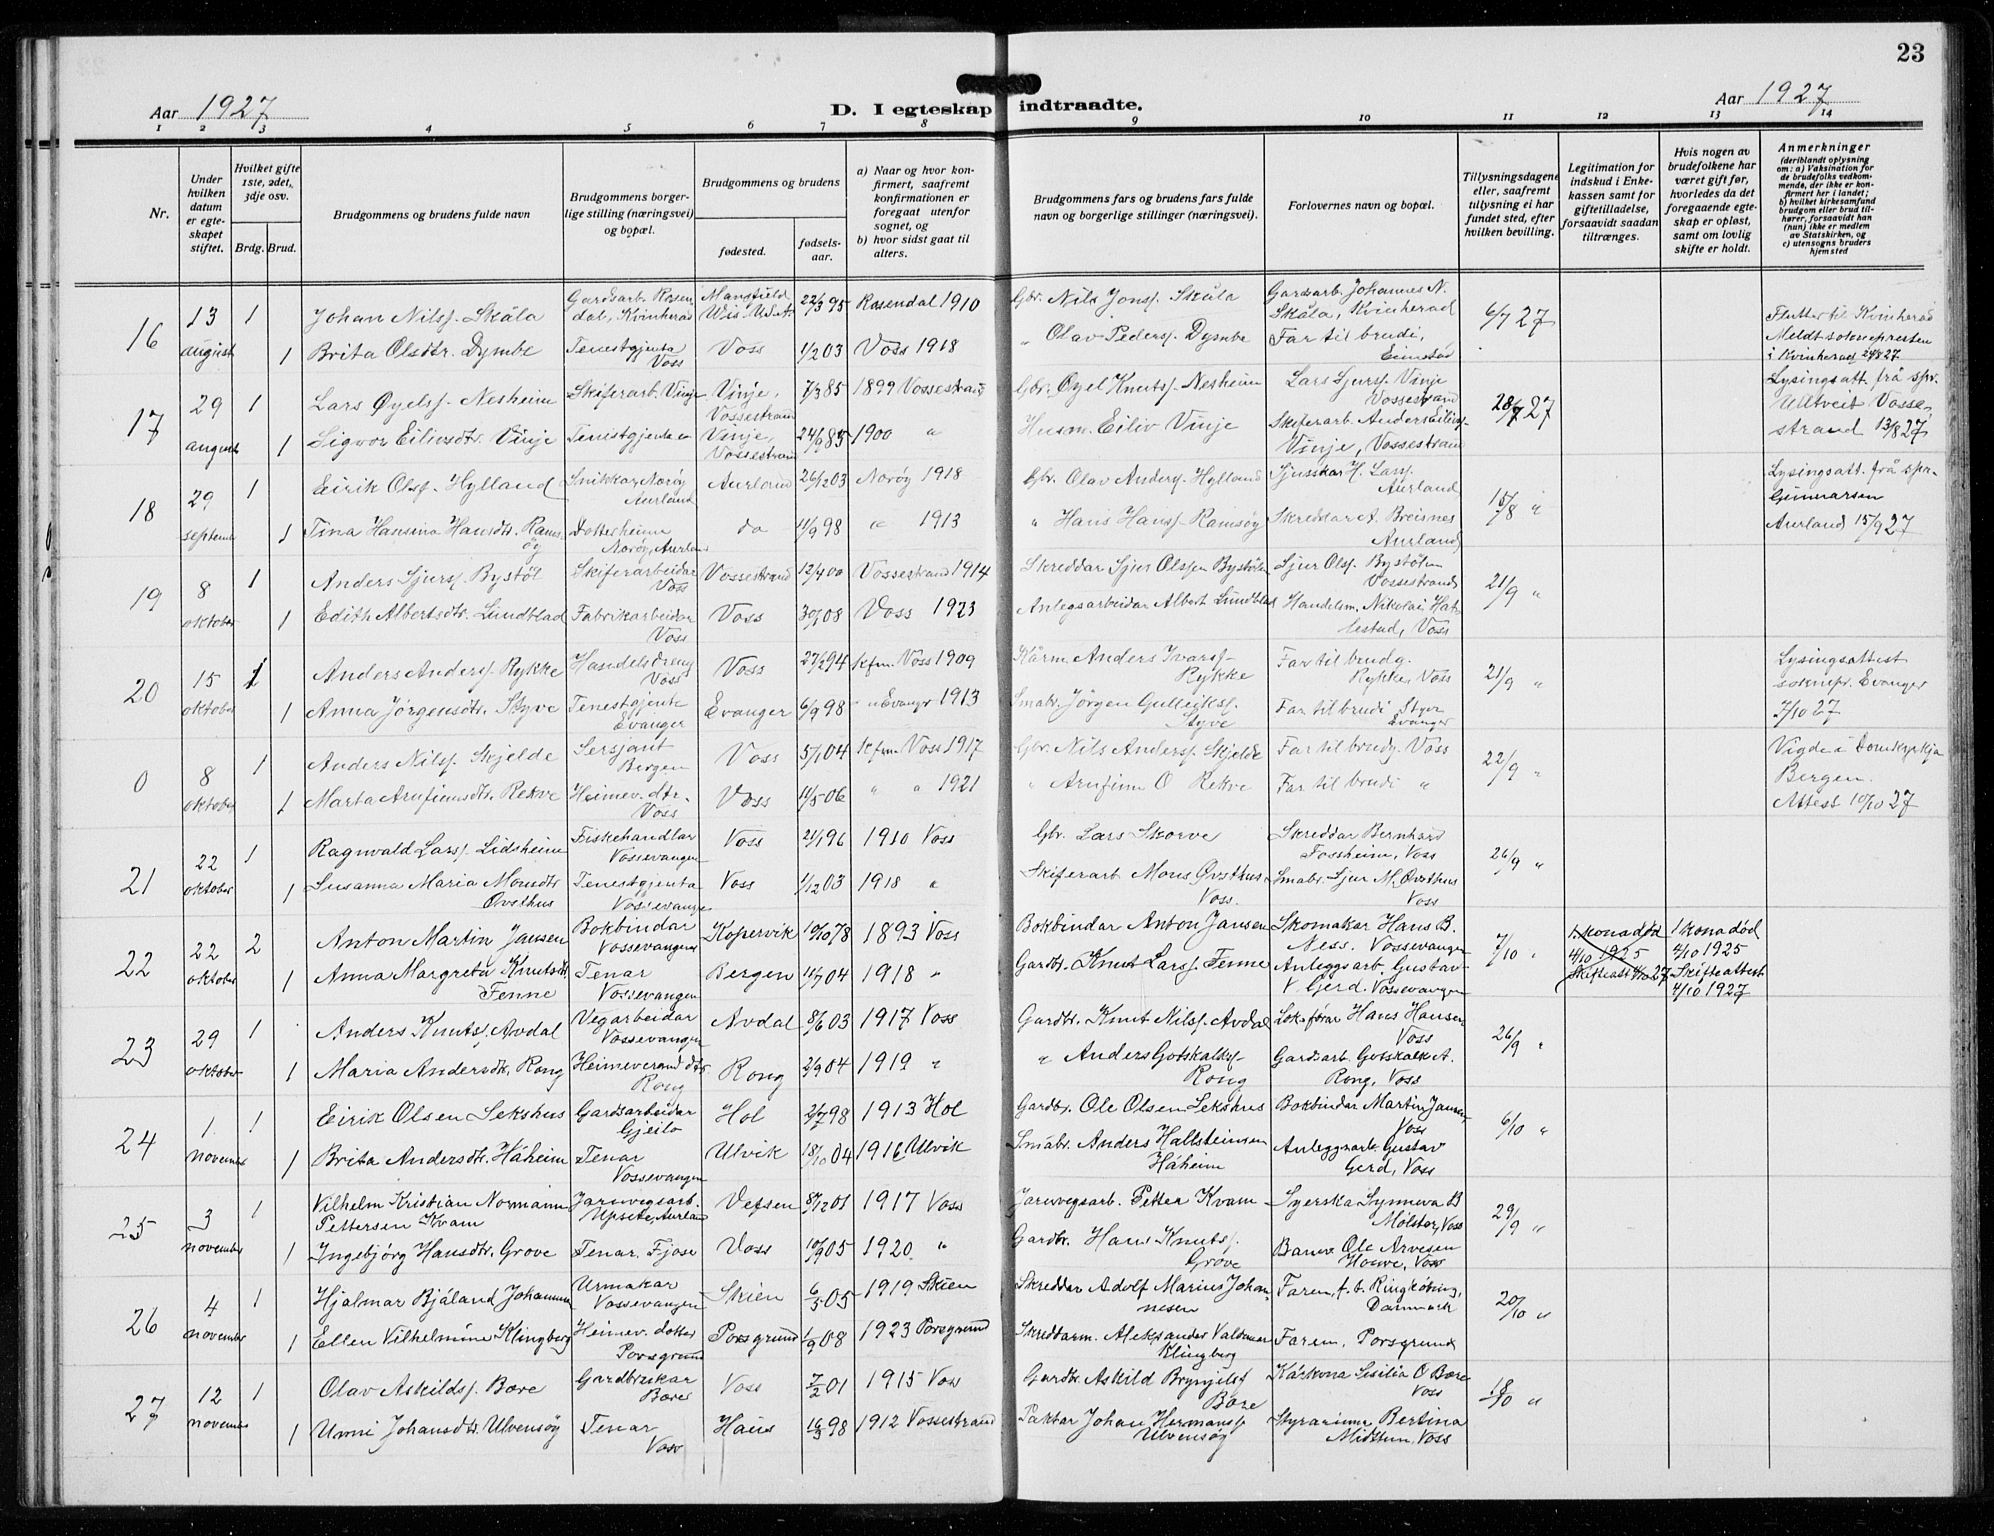 23
Aar 1927
D. I egteskap indtraadte.
Aar 1927
1 2 3 4 5 6 7 8 9 10 11 12 13 14
Nr.
Under hvilken datum er egteskapet stiftet.
Hvilket gifte 1ste, 2det, 3dje osv.
Brdg. Brud.
Brudgommens og brudens fulde navn
Brudgommens borgerlige stilling (næringsvei) og bopæl.
Brudgommens og brudens
fødested.
fødselsaar.
a) Naar og hvor konfirmert, saafremt konfirmationen er foregaat utenfor sognet, og
b) hvor sidst gaat til alters.
Brudgommens fars og brudens fars fulde navn og borgerlige stillinger (næringsvei).
Forlovernes navn og bopæl.
Tillysningsdagene eller, saafremt tillysning ei har fundet sted, efter hvilken bevilling.
Legitimation for indskud i Enkekassen samt for giftetilladelse, forsaavidt saadan tiltrænges.
Hvis nogen av brudefolkene har været gift før, hvorledes da det foregaaende egteskap er opløst, samt om lovlig skifte er holdt.
Anmerkninger
(deriblandt oplysning om: a) Vaksination for de brudefolks vedkommende, der ikke er konfirmert her i landet; b) hvilket kirkesamfund brudgom eller brud tilhører, forsaavidt han (nun) ikke er medlem av Statskirken, og c) utensogns bruders hjemsted
16 13 august 1 Johan Nilss. Skåla Gardsarb. Rosendal, Kvinherad Mansfield Wis. U.S.A. 22/3 95 Rosendal 1910 Gbr. Nils Jonss. Skåla Gardsarb. Johannes N. Skåla, Kvinherad 6/7 27 Flutter til Kvinherad
1 Brita Olsdtr. Dymbe Tenestgjenta Voss Voss 1/2 03 Voss 1918 " Olav Peders. Dymbe Far til brudi, Meldt soknepresten i Kvinherad 24/8 27
17 29 august 1 Lars Øyelss. Nesheim Skiferarb. Vinje Vinje, Vossestrand 7/3 85 1899 Vossestrand Gbr. Øyel Knutss. Nesheim Lars Sjurss. Vinje Vossestrand 28/7 27 Lysingsatt. frå spr. Ulltveit Vossestrand 13/8 27
1 Sigvor Eilivsdtr. Vinje Tenestgjenta Vinje, Vossestrand 24/9 85 1900 " Husm. Eiliv Vinje Skiferarb. Anders Eilivs. Vinje, Vossestrand
18 29 septemb 1 Eirik Olss. Hylland Snikkar Norøy Aurland Aurland 26/12 03 Norøy 1918 Gbr. Olav Anders. Hylland Sjusskar H. Larss. Aurland 15/8 " Lysingsatt. frå spr. Gunnarsen
1 Tina Hansina Hansdtr. Ramsøy Dotterheime Norøy, Aurland do 11/9 98 " 1913 " Hans Hanss. Ramsøy Skreddar A. Breisnes Aurland Aurland 15/9 27
19 8 oktober 1 Anders Sjurss. Bystøl Skiferarbeidar Voss Vossestrand 12/4 00 Vossestrand 1914 Skreddar Sjur Olssen Bystølen Sjur Olss. Bystølen Vossestrand 21/9 "
1 Edith Albertsdtr. Lundblad Fabrikarbeidar Voss Voss 30/1 08 Voss 1923 Anlegsarbeidar Albert Lundblad Handelsm. Nikolai Hatlestad, Voss
20 15 oktober 1 Anders Anderss. Rykke Handelsdreng Voss Voss 27/2 94 kfm. Voss 1909 Kårm. Anders Ivarss. Rykke Far til brudg. Rykke, Voss 21/9 " Lysingsattest soknepr. Evanger
1 Anna Jørgensdtr. Styve Tenestgjente Evanger Evanger 6/9 98 " Evangr 1913 Smabr. Jörgen Gulleikss. Styve Far til brudi Styve Evanger 7/10 27
0 8 oktober 1 Anders Nilss. Skjelde Sersjant Bergen Voss 5/1 04 kfm. Voss 1917 Gbr. Nils Anderss. Skjelde Far til brudg. Voss 22/9 " Vigde i Domkyrkja Bergen.
1 Marta Arnfinnsdtr. Rekve Heimev. dtr. Voss Voss 11/5 06 " " 1921 " Arnfinn O Rekve Far til brudi " Attest 10/10 27
21 22 oktober 1 Ragnvald Larss. Lidsheim Fiskehandlar Vossevangen Voss 21/1 96 1910 Voss Gbr. Lars Skorve Skreddar Bernhard Fossheim, Voss 26/9 "
1 Susanna Maria Monsdtr Øvsthus Tenestgjenta Vossevange Voss 1/12 03 1918 " Skiferarb. Mons Øvsthus Voss. Smabr. Sjur M. Øvsthus Voss
22 22 oktober 2 Anton Martin Jansen Bokbindar Vossevangen Kopervik 10/10 78 1893 Voss Bokbindar Anton Jansen Skomakar Hans B. Ness. Vossevangen 7/10 " 1. kona död 4/10 1925 Skifteatt 4/10 27 1 kona död 4/10 1925 Skifteattest 4/10 1927
1 Anna Margreta Knutsdtr Fenne Tenar Vossevangen Bergen 11/7 04 1918 " Gardbr. Knut Larss. Fenne Anleggsarb. Gustav V. Gjerd. Vossevangen
23 29 oktober 1 Anders Knutss. Avdal Vegarbeidar Vossevangen Avdal 8/6 03 1917 Voss Gardbr. Knut Nilss. Avdal Lok.förar Hans Hansen Voss 26/9 "
1 Maria Andersdtr. Rong Heimeverand dtr. Rong Rong 2/9 04 1919 " " Anders Gotskalks. Rong Gardsarb. Gotskalk A. Rong, Voss
24 1 november 1 Eirik Olsen Sekshus Gardsarbeidar Gjeilo Hol 2/7 98 1913 Hol Gardbr. Ole Olsen Sekshus Bokbindar Martin Jansen, Voss 6/10 "
1 Brita Andersdtr. Håheim Tenar Vossevangen Ulvik 18/10 04 1916 Ulvik Småbr. Anders Hallsteinsen Håheim Anleggsarb. Gustav Gerd, Voss
25 3 november 1 Vilhelm Kristian Normann Pettersen Kvam Jarnvegsarb. Upsete, Aurland Vefsen 8/12 01 1917 Voss Jarnvegsarb. Petter Kvam Syerska Synneva B Mølster, Voss 29/9 "
1 Ingebjörg Hansdtr. Grove Tenar. Fjose Voss 10/9 05 1920 " Gardbr. Hans Knutss. Grove Banev. Ole Arvesen Houve, Voss
26 4 november 1 Hjalmar Bjåland Johannesen Urmakar Vossevangen Skien 6/5 05 1919 Skien Skreddar Adolf Marius Johannesen Faren, f. t. Ringkøbing, Danmark 20/10 "
1 Ellen Vilhelmine Klingberg Heimev. dotter Porsgrund Porsgrund 1/9 08 1923 Porsgrund Skreddarm. Aleksander Valdemar Klingberg Faren, Porsgrund
27 12 november 1 Olav Askildss. Børe Gardbrukar Børe Voss 7/2 01 1915 Voss Gardbr. Askild Brynjulfs. Børe Kårkona Sisilia O Børe Voss 18/10 "
1 Unni Johansdtr. Ulvensøy Tenar Voss Haus 16/3 98 1912 Vossestrand Paktar Johan Hermanss. Ulvensøy Styrarinne Bertina Midttun, Voss